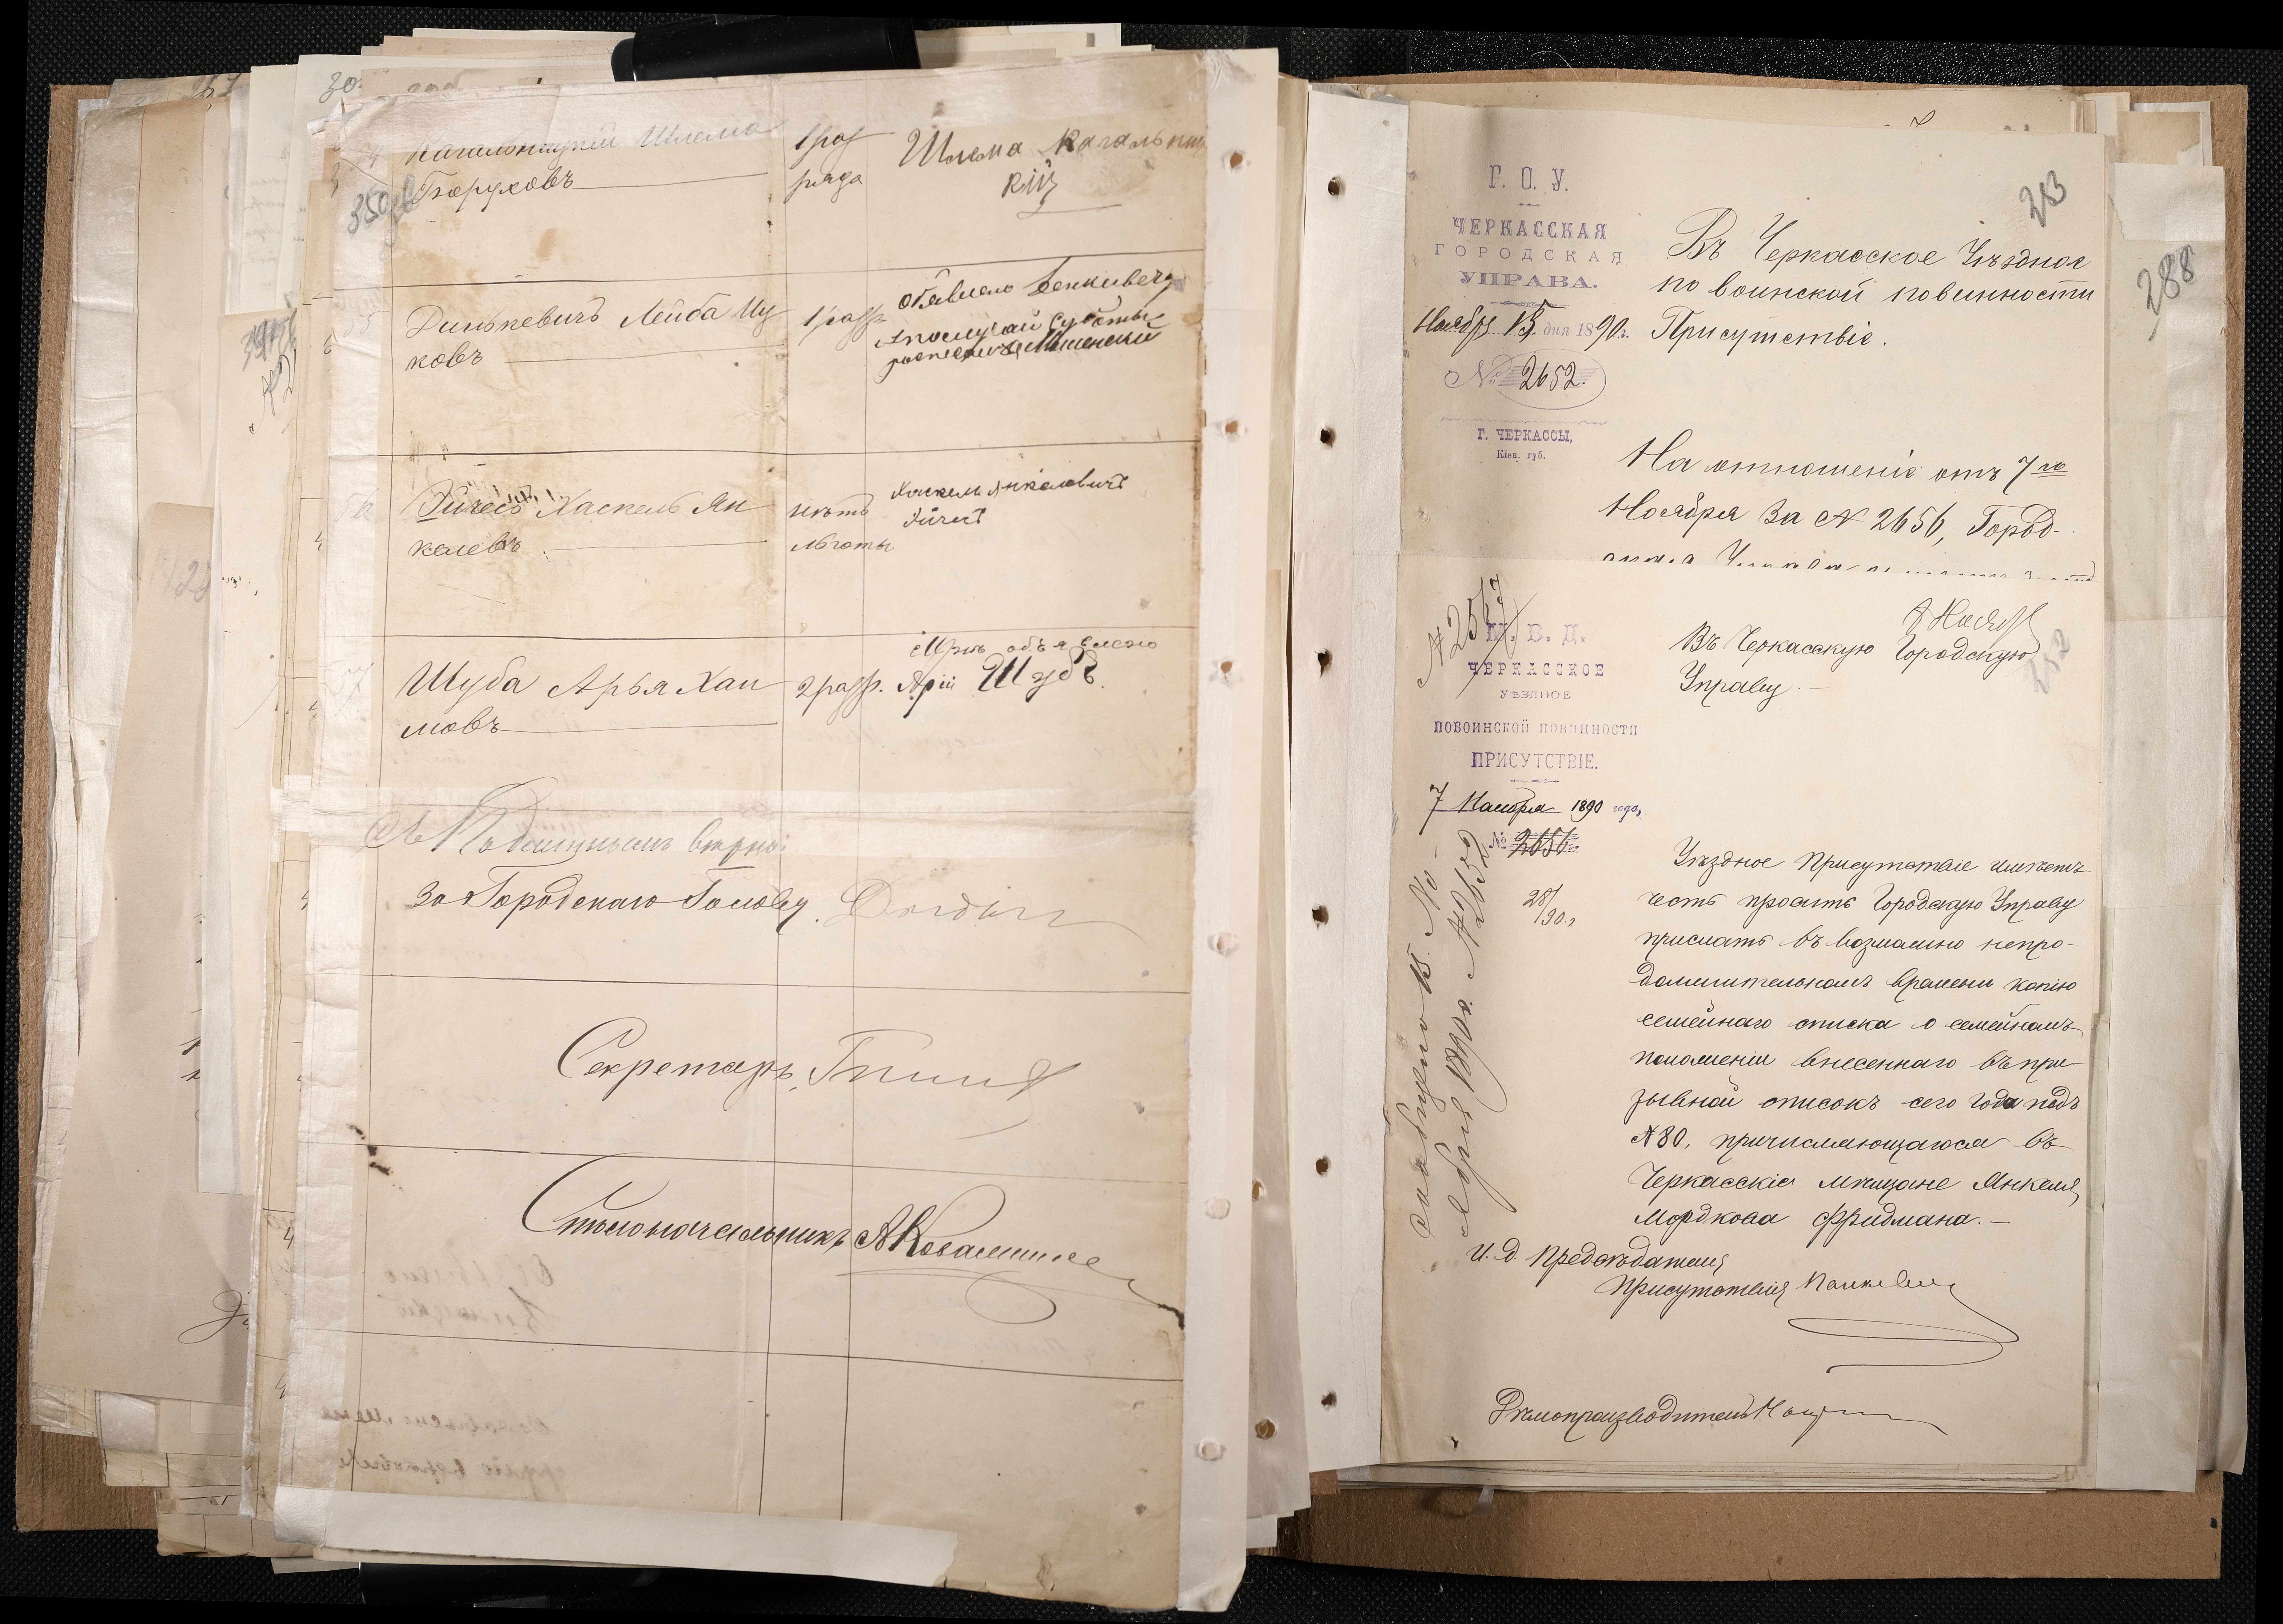 30.
Кагальницкій Шлема
Боруховъ
1 раз
ряда
Шлема Кагальниц
кій
350
Динькевичъ Лейба Иц
ковъ
1 разр.
Объявлено
Эйчесъ Хаскель Ян
келевъ
нѣтъ
льготы
Хаскель Янкелевичъ
Эйчесъ
Шуба Арья Хаи
мовъ
2 разр.
Мнѣ объявлено
Арій Шуба
Съ Подлиннымъ вѣрно:
За Городскаго Голову
Секретарь
Столоначальникъ
Г. О. У.
ЧЕРКАССКАЯ
ГОРОДСКАЯ
УПРАВА.
Ноября 15 дня 1890 г.
№ 2652.
Г. ЧЕРКАССЫ,
Кіев. губ.
283
288
Въ Черкасское Уѣздное
по воинской повинности
Присутствіе.
На отношеніе отъ 7го
Ноября за № 2656, Город-
М. В. Д.
ЧЕРКАССКОЕ
УѢЗДНОЕ
ПО ВОИНСКОЙ ПОВИННОСТИ
ПРИСУТСТВІЕ.
7 Ноября 1890 года,
№ 2656
28/
90 г.
Въ Черкасскую Городскую
Управу.
Уѣздное Присутствіе имѣетъ
честь просить Городскую Управу
прислать въ возможно непро-
должительномъ времени копію
семейнаго списка о семейномъ
положеніи внесеннаго въ при
зывной списокъ сего года подъ
№ 80, причисляющагося въ
Черкасскіе мѣщане Янкеля
Мордкова Фридмана.
И. д. Предсѣдателя
Присутствія
Дѣлопроизводитель